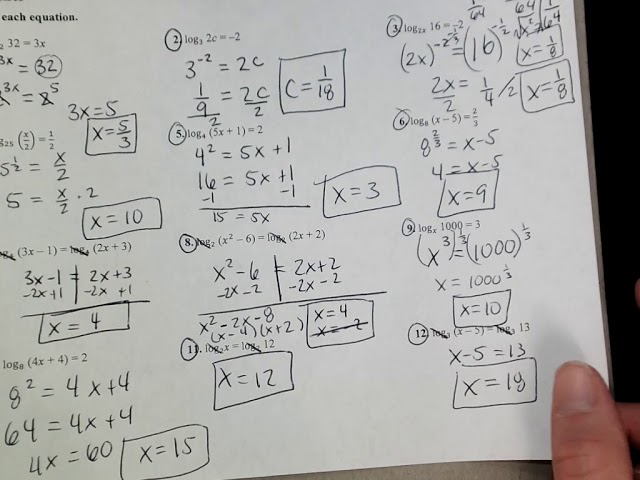 each equation.
2 32 = 3x
3x = 32
3x = 8^5
3x = 5
x = 5/3
2. log₃ 2c = -2
3^-2 = 2c
1/9 = 2c
2 2
c = 1/18
3. log₂ₓ 16 = -2
1/64
64
(2x)^-2·-1/2 = (16)^-1/2
x = 1/8
2x = 1/4 /2
2
x = 1/8
25 (x/2) = 1/2
5^1/2 = x/2
5 = x/2 · 2
x = 10
5. log₄ (5x + 1) = 2
4² = 5x + 1
16 = 5x + 1
-1 -1
15 = 5x
x = 3
6. log₈ (x - 5) = 2/3
8^2/3 = x - 5
4 = x - 5
x = 9
log₄ (3x - 1) = log₄ (2x + 3)
3x - 1 = 2x + 3
-2x + 1 -2x + 1
x = 4
8. log₂ (x² - 6) = log₂ (2x + 2)
x² - 6 = 2x + 2
-2x - 2 -2x - 2
x² - 2x - 8
(x - 4)(x + 2)
x = 4
x = -2
9. logₓ 1000 = 3
(x³)^1/3 = (1000)^1/3
x = 1000^1/3
x = 10
log₈ (4x + 4) = 2
8² = 4x + 4
64 = 4x + 4
4x = 60
x = 15
11. log₂ x = log₂ 12
x = 12
12. log₃ (x - 5) = log₃ 13
x - 5 = 13
x = 18